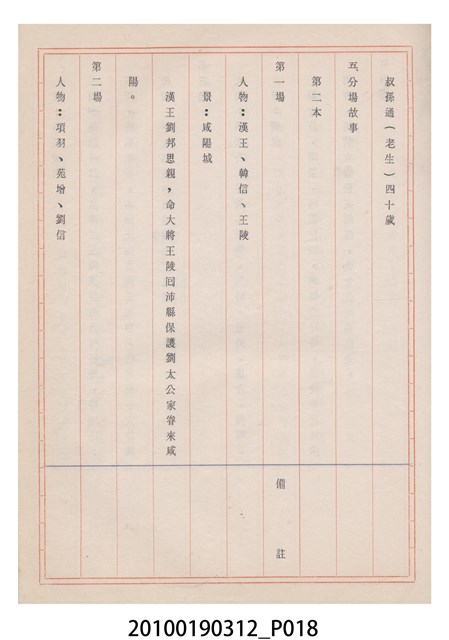 叔孫通(老生)四十歲
五、分場故事
第二本
第一場
備註
人物：漢王、韓信、王陵
景：咸陽城
漢王劉邦思親，命大將王陵回沛縣保護劉太公家眷來咸
陽。
第二場
人物：項羽、范增、劉信
20100190312_P018